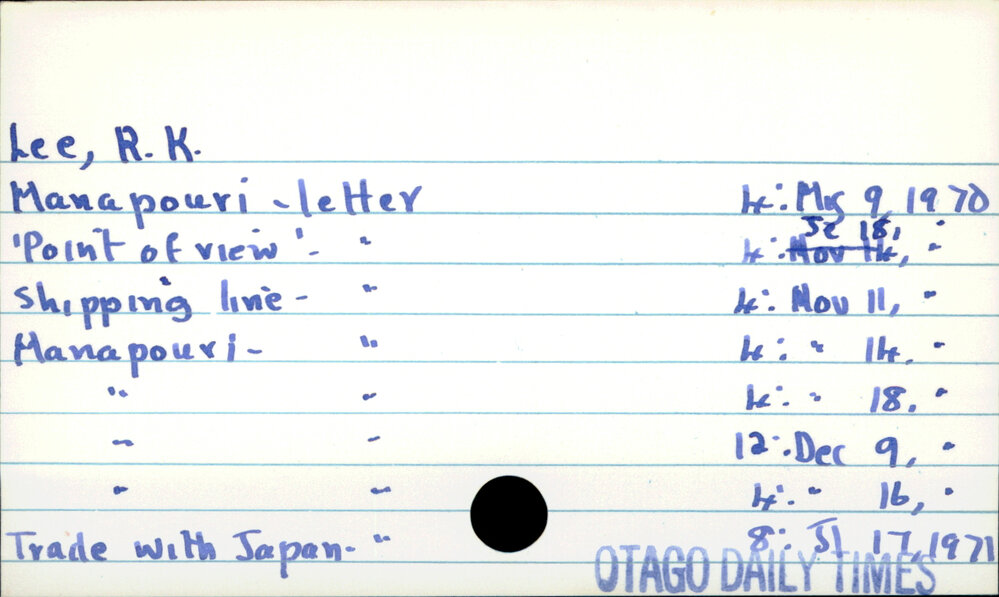 Lee, R. K.
Manapouri - letter 4: Mr 9, 1970
'Point of view' - " 4: Nov 14, Je 18, "
Shipping line - " 4: Nov 11, "
Manapouri - " 4: " 14. "
" " 4: " 18. "
" " 12: Dec 9, "
" " 4: " 16, "
Trade with Japan - " 8: Jl 17, 1971
OTAGO DAILY TIMES